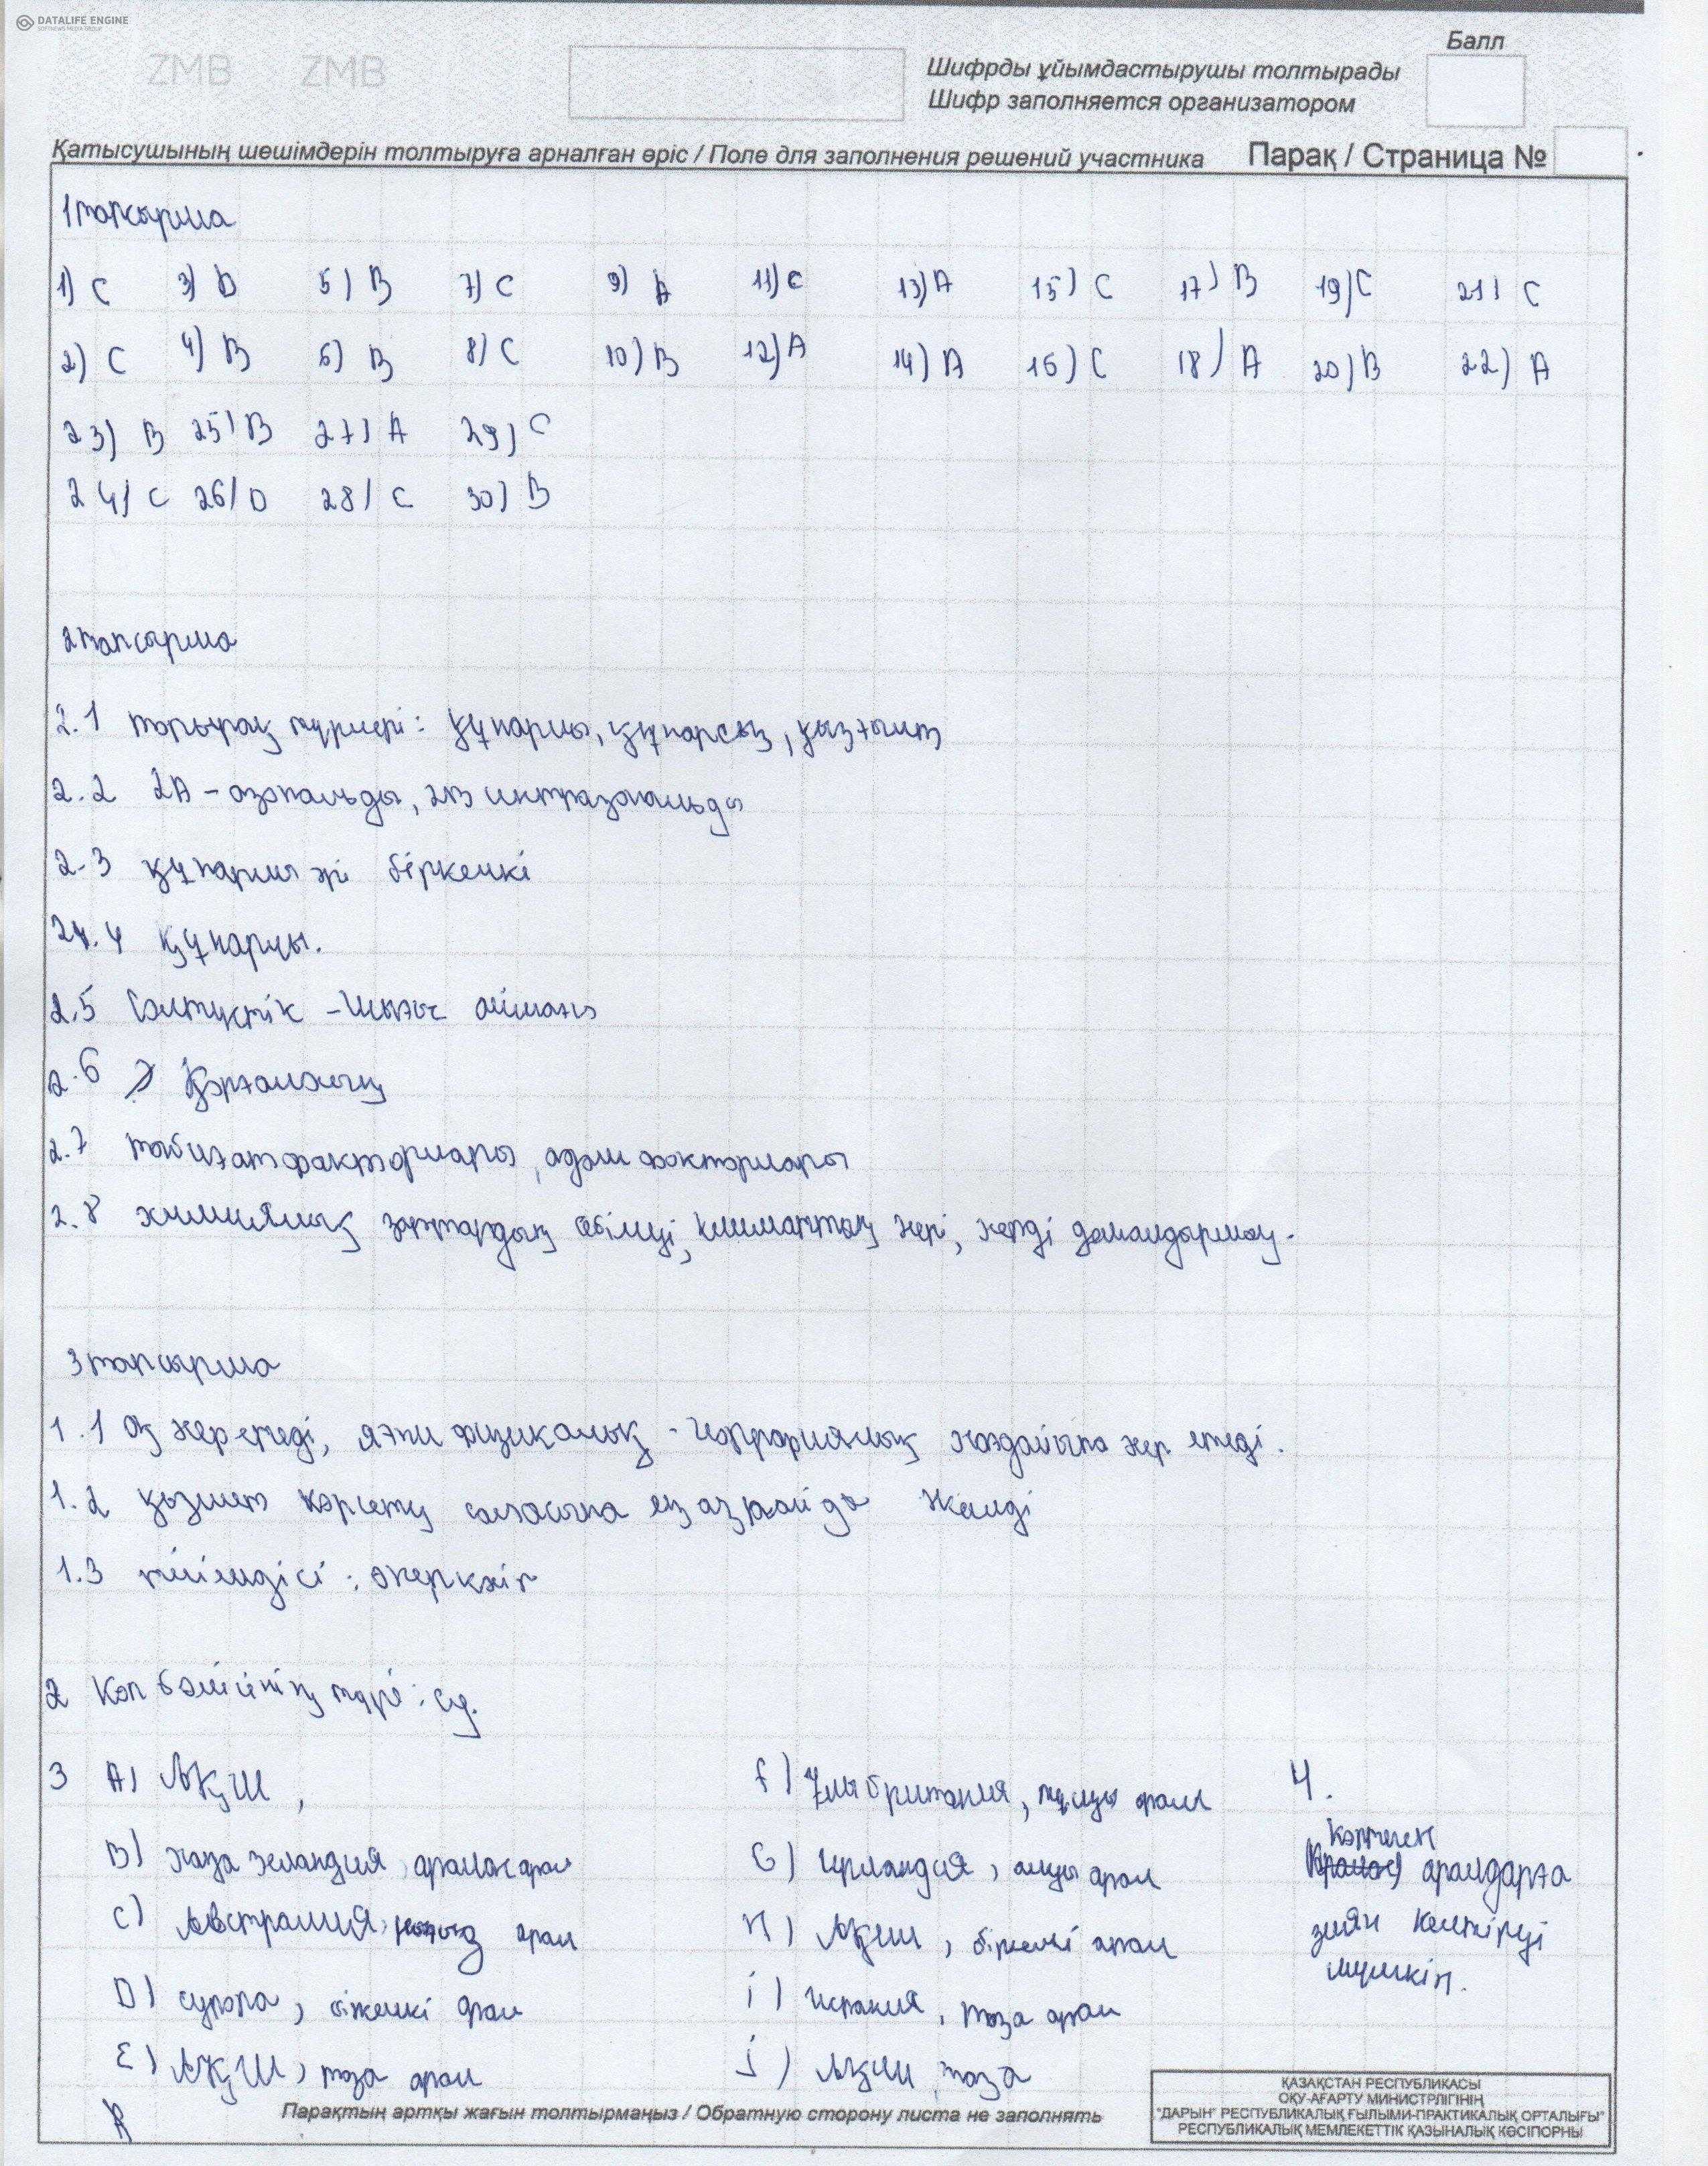 DATALIFE ENGINE
SOFTNEWS MEDIA GROUP
ZMB ZMB
Балл
Шифрды ұйымдастырушы толтырады
Шифр заполняется организатором
Қатысушының шешімдерін толтыруға арналған өріс / Поле для заполнения решений участника Парақ / Страница №
1 тапсырма
1) C 3) D 5) B 7) C 9) A 11) C 13) A 15) C 17) B 19) C 21) C
2) C 4) B 6) B 8) C 10) B 12) A 14) A 16) C 18) A 20) B 22) A
23) B 25) B 27) A 29) C
24) C 26) D 28) C 30) B
2 тапсырма
2.1 топырақ түрлері: құнарлы, құнарсыз,
2.2 2A - азональды, 2B интразональды
2.3 құнарлы әрі біркелкі
2.4 құнарлы.
2.5 Солтүстік - Шығыс аймағы
2.6 Қорғалжың
2.7 табиғат факторлары, адам факторлары
2.8 химиялық заттардың климаттың жері, жерді
3 тапсырма
1.1 әсер етеді, яғни физикалық - географиялық жағдайына әсер етеді.
1.2 қызмет көрсету саласына ең аз
1.3 тиімдісі: өнеркәсіп
2 көп бөлігінің түрі: су.
3 A) АҚШ,
B) жаңа зеландия, аралас арал
C) Австралия, арал
D) арал
E) АҚШ, таза арал
f) Ұлыбритания, арал
G) Ирландия, арал
H) АҚШ, арал
i) Испания, таза арал
j) АҚШ, таза
4.
көптеген
аралдарға
зиян келтіруі
мүмкін.
Парақтың артқы жағын толтырмаңыз / Обратную сторону листа не заполнять
ҚАЗАҚСТАН РЕСПУБЛИКАСЫ
ОҚУ-АҒАРТУ МИНИСТРЛІГІНІҢ
"ДАРЫН" РЕСПУБЛИКАЛЫҚ ҒЫЛЫМИ-ПРАКТИКАЛЫҚ ОРТАЛЫҒЫ"
РЕСПУБЛИКАЛЫҚ МЕМЛЕКЕТТІК ҚАЗЫНАЛЫҚ КӘСІПОРНЫ